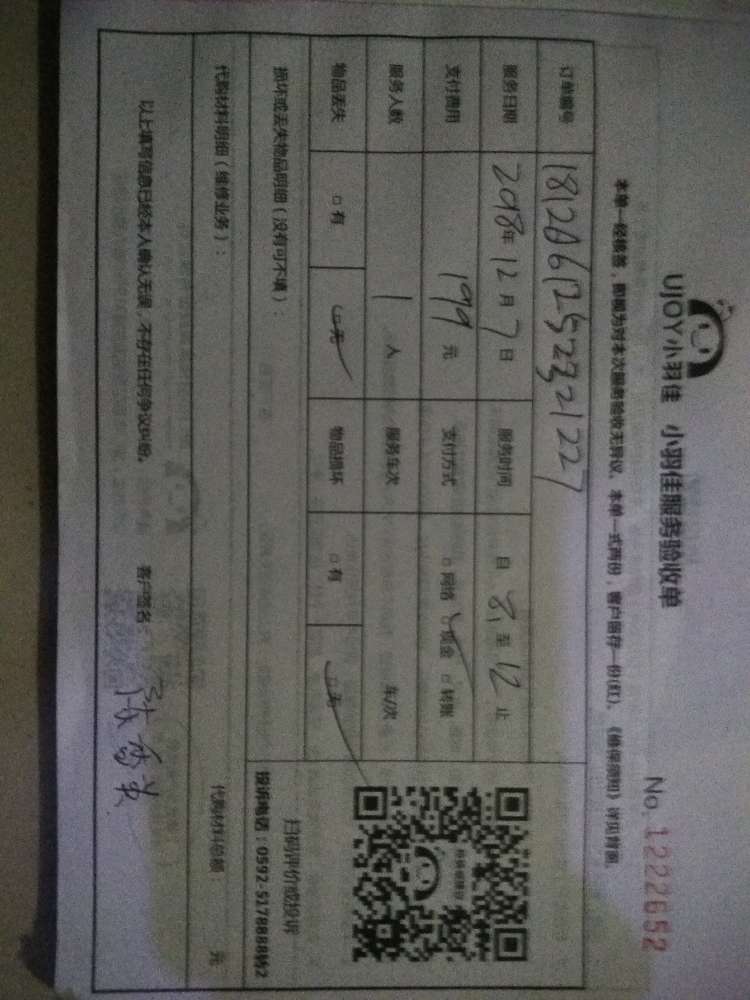 UJOY小羽佳 小羽佳服务验收单 No. 1222652
本单一经签署,即视为对本次服务验收无异议。本单一式两份,客户留存一份(红)。《维保须知》详见背面。
订单编号
服务日期 2018年 12月 7日 服务时间 自 8 至 12 止
支付费用 199 元 支付方式 □网络 ☑现金 □转账
服务人数 1 人 服务车次 车/次
物品丢失 □有 ☑无 物品损坏 □有 ☑无
损坏或丢失物品明细(没有可不填):
扫码评价或投诉
投诉电话:0592-5178888转2
代购材料明细(维修业务): 代购材料总额: 元
以上填写信息已经本人确认无误,不存在任何争议纠纷。 客户签名: